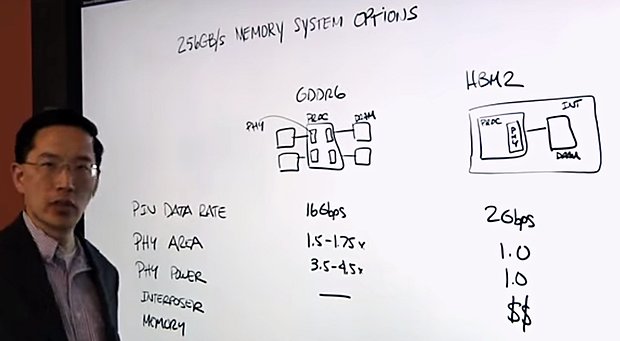 256GB/s MEMORY SYSTEM OPTIONS
GDDR6
HBM2
PHY PROC DRAM
INT
PROC PHY DRAM
PIN DATA RATE 16Gbps 2Gbps
PHY AREA 1.5-1.75x 1.0
PHY POWER 3.5-4.5x 1.0
INTERPOSER — $$
MEMORY